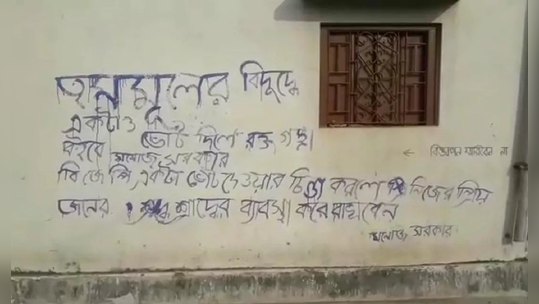 তৃনমূলের বিদুদ্ধে
একটাও ভোট দিলে রক্ত গঙ্গা
বইবে মনোজ সরকার
বিজ্ঞাপন মারিবেন না
বি জে পি একটা ভোট দেওয়ার চিন্তা করলে নিজের প্রিয়
জনের শ্রাদ্ধের ব্যবস্থা করে রাখবেন
মনোজ সরকার